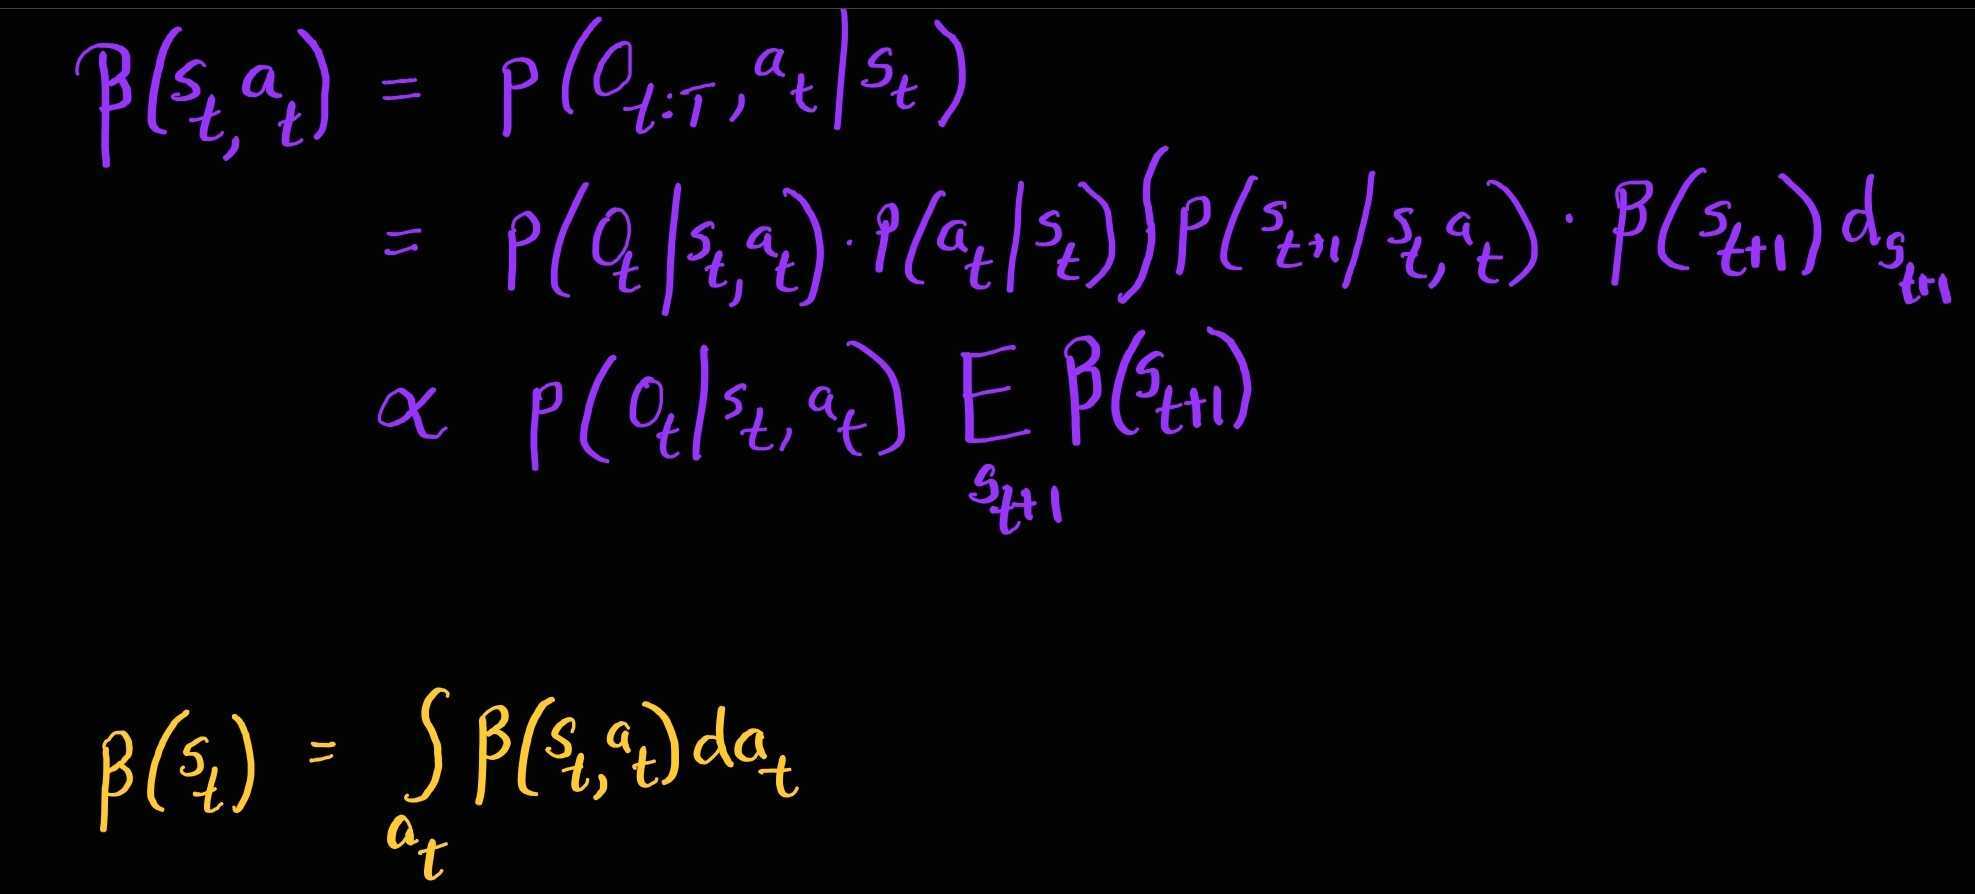 β(s_t, a_t) = p(O_{t:T}, a_t | s_t)
= p(O_t | s_t, a_t) · p(a_t | s_t) ∫ p(s_{t+1} | s_t, a_t) · β(s_{t+1}) d s_{t+1}
∝ p(O_t | s_t, a_t) E_{s_{t+1}} β(s_{t+1})
β(s_t) = ∫_{a_t} β(s_t, a_t) da_t